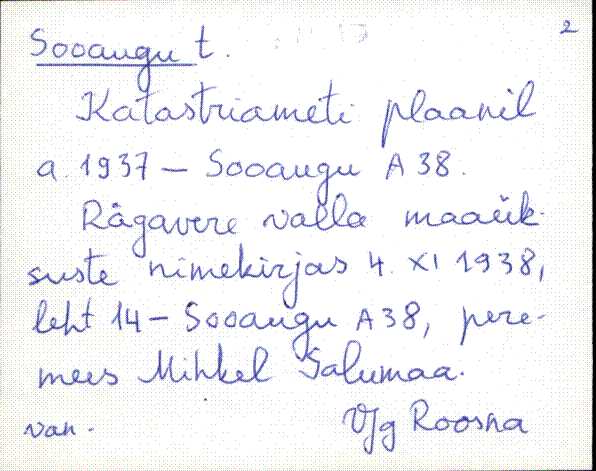 2
Sooaugu t.
Katastriameti plaanil
a. 1937 – Sooaugu A 38.
Rägavere valla maaük-
suste nimekirjas 4. XI 1938,
leht 14 – Sooaugu A 38, pere-
mees Mihkel Salumaa.
van. VJg Roosna